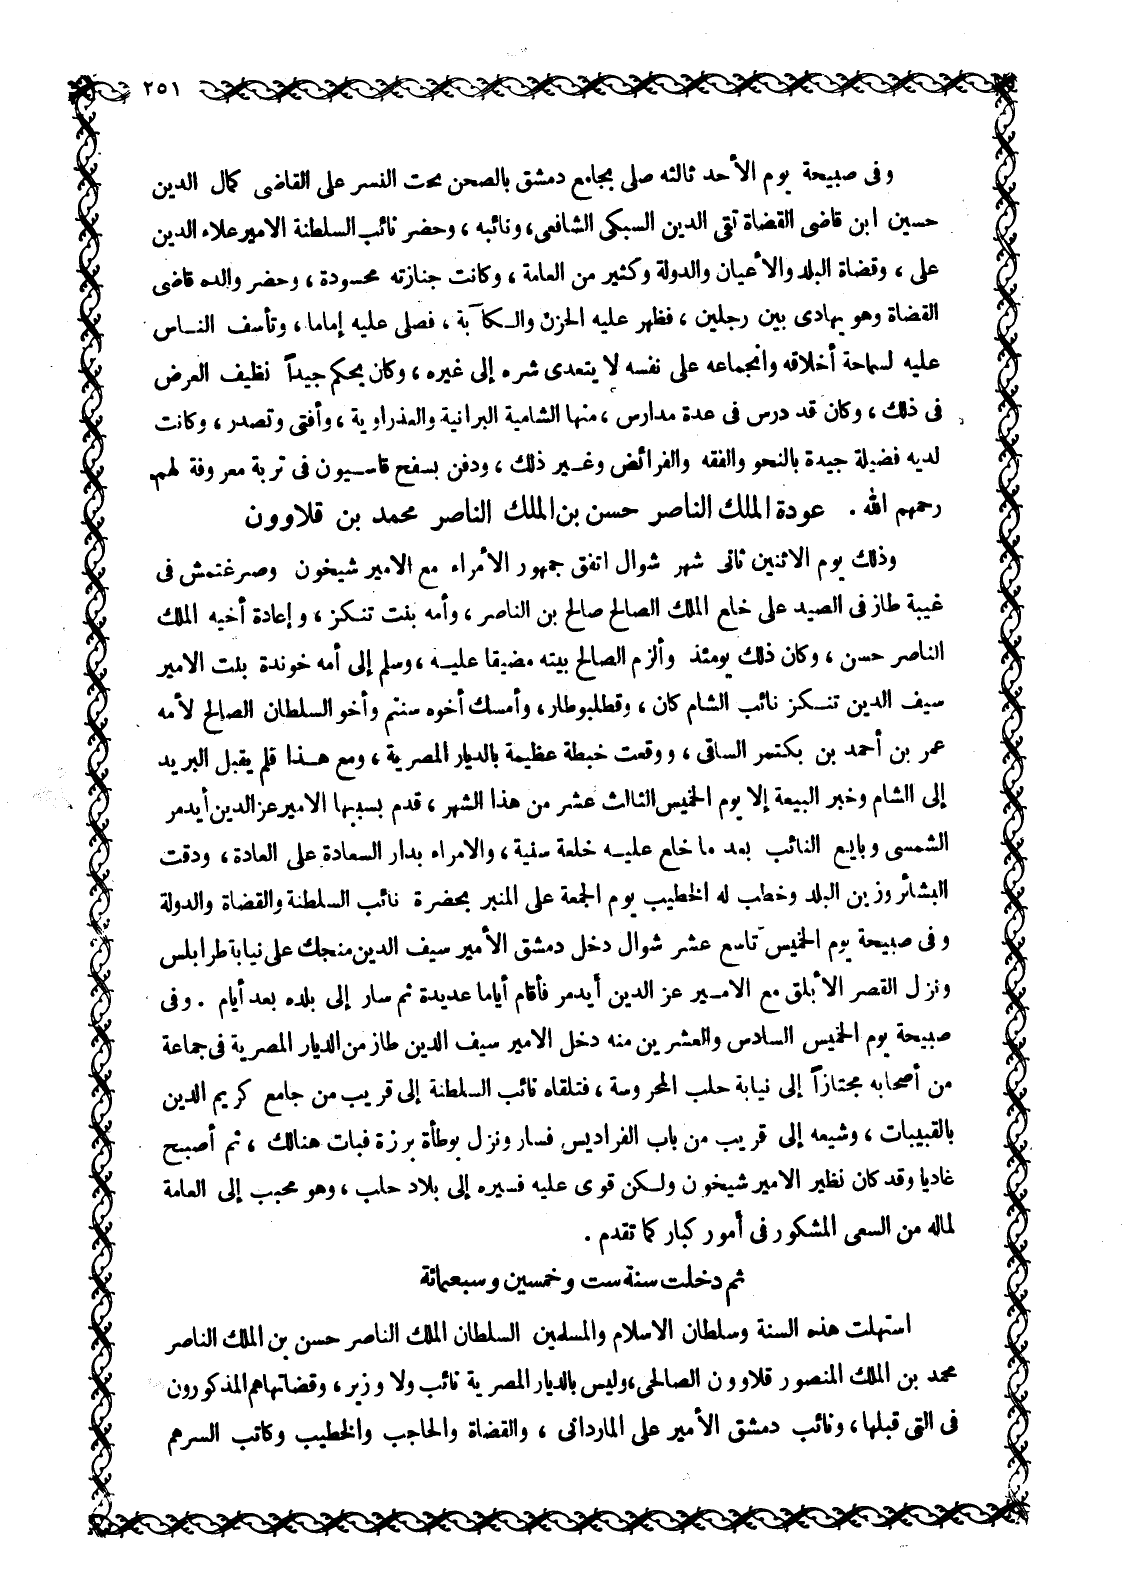 ٢٥١
وفى صبيحة يوم الأحد ثالثه صلى بجامع دمشق بالصحن تحت النسر على القاضى كمال الدين
حسين ابن قاضى القضاة تقى الدين السبكى الشافعى، ونائبه، وحضر نائب السلطنة الامير علاء الدين
على، وقضاة البلد والأعيان والدولة وكثير من العامة، وكانت جنازته محسودة، وحضر والده قاضى
القضاة وهو يهادى بين رجلين، فظهر عليه الحزن والكآبة، فصلى عليه إماما، وتأسف الناس
عليه لسماحة أخلاقه وانجماعه على نفسه لا يتعدى شره إلى غيره، وكان يحكم جيداً نظيف العرض
فى ذلك، وكان قد درس فى عدة مدارس، منها الشامية البرانية والعذراوية، وأفتى وتصدر، وكانت
لديه فضيلة جيدة بالنحو والفقه والفرائض وغير ذلك، ودفن بسفح قاسيون فى تربة معروفة لهم
رحمهم الله. عودة الملك الناصر حسن بن الملك الناصر محمد بن قلاوون
وذلك يوم الاثنين ثانى شهر شوال اتفق جمهور الأمراء مع الامير شيخون وصرغتمش فى
غيبة طاز فى الصيد على خلع الملك الصالح صالح بن الناصر، وأمه بنت تنكز، وإعادة أخيه الملك
الناصر حسن، وكان ذلك يومئذ وألزم الصالح بيته مضيقا عليه، وسلم إلى أمه خوندة بنت الامير
سيف الدين تنكز نائب الشام كان، وقطلبوطار، وأمسك أخوه سنتم وأخو السلطان الصالح لأمه
عمر بن أحمد بن بكتمر الساقى، ووقعت خبطة عظيمة بالديار المصرية، ومع هذا فلم يقبل البريد
إلى الشام وخبر البيعة إلا يوم الخميس الثالث عشر من هذا الشهر، قدم بسببها الامير عز الدين أيدمر
الشمسى وبايع النائب بعد ما خلع عليه خلعة سنية، والامراء بدار السعادة على العادة، ودقت
البشائر وزين البلد وخطب له الخطيب يوم الجمعة على المنبر بحضرة نائب السلطنة والقضاة والدولة
وفى صبيحة يوم الخميس تاسع عشر شوال دخل دمشق الأمير سيف الدين منجك على نيابة طرابلس
ونزل القصر الأبلق مع الامير عز الدين أيدمر فأقام أياما عديدة ثم سار إلى بلده بعد أيام. وفى
صبيحة يوم الخميس السادس والعشرين منه دخل الامير سيف الدين طاز من الديار المصرية فى جماعة
من أصحابه مجتازاً إلى نيابة حلب المحروسة، فتلقاه نائب السلطنة إلى قريب من جامع كريم الدين
بالقبيبات، وشيعه إلى قريب من باب الفراديس فسار ونزل بوطأة برزة فبات هنالك، ثم أصبح
غاديا وقد كان نظير الامير شيخون ولكن قوى عليه فسيره إلى بلاد حلب، وهو محبب إلى العامة
لماله من السعى المشكور فى أمور كبار كما تقدم.
ثم دخلت سنة ست وخمسين وسبعمائة
استهلت هذه السنة وسلطان الاسلام والمسلمين السلطان الملك الناصر حسن بن الملك الناصر
محمد بن الملك المنصور قلاوون الصالحى، وليس بالديار المصرية نائب ولا وزير، وقضاتها هم المذكورون
فى التى قبلها، ونائب دمشق الأمير على الماردانى، والقضاة والحاجب والخطيب وكاتب السر هم